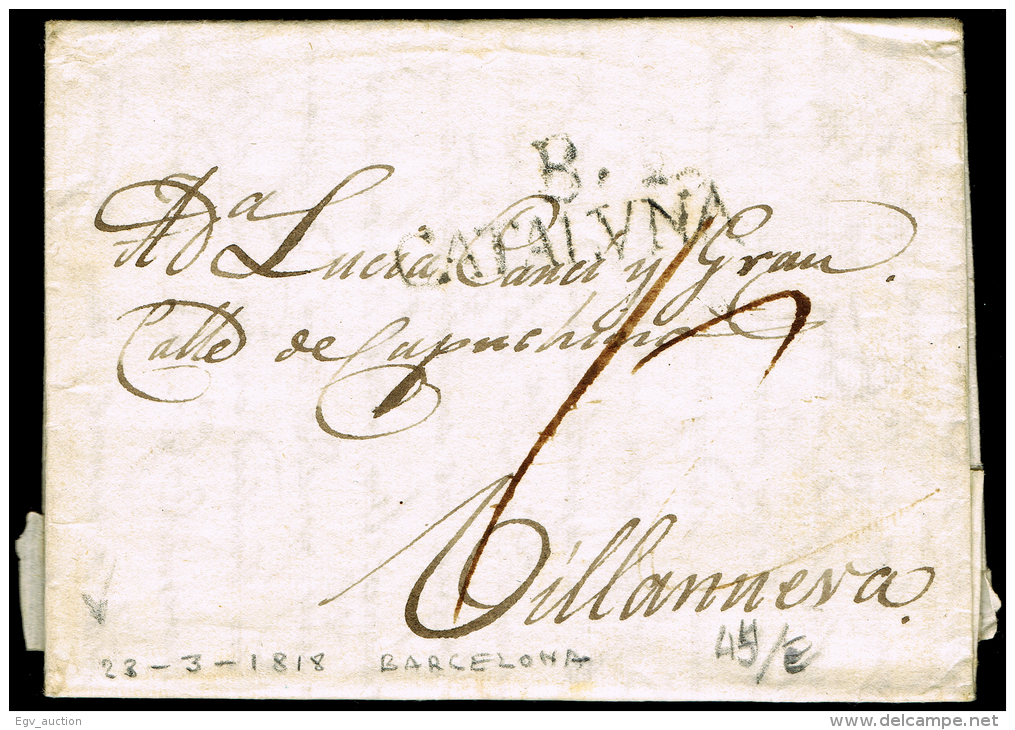 B. 2.
CATALVÑA
A Dª Lucia y Grau.
Calle de Capuchino
Villanueva.
23-3-1818 BARCELONA
Egv_auction
delcampe.net